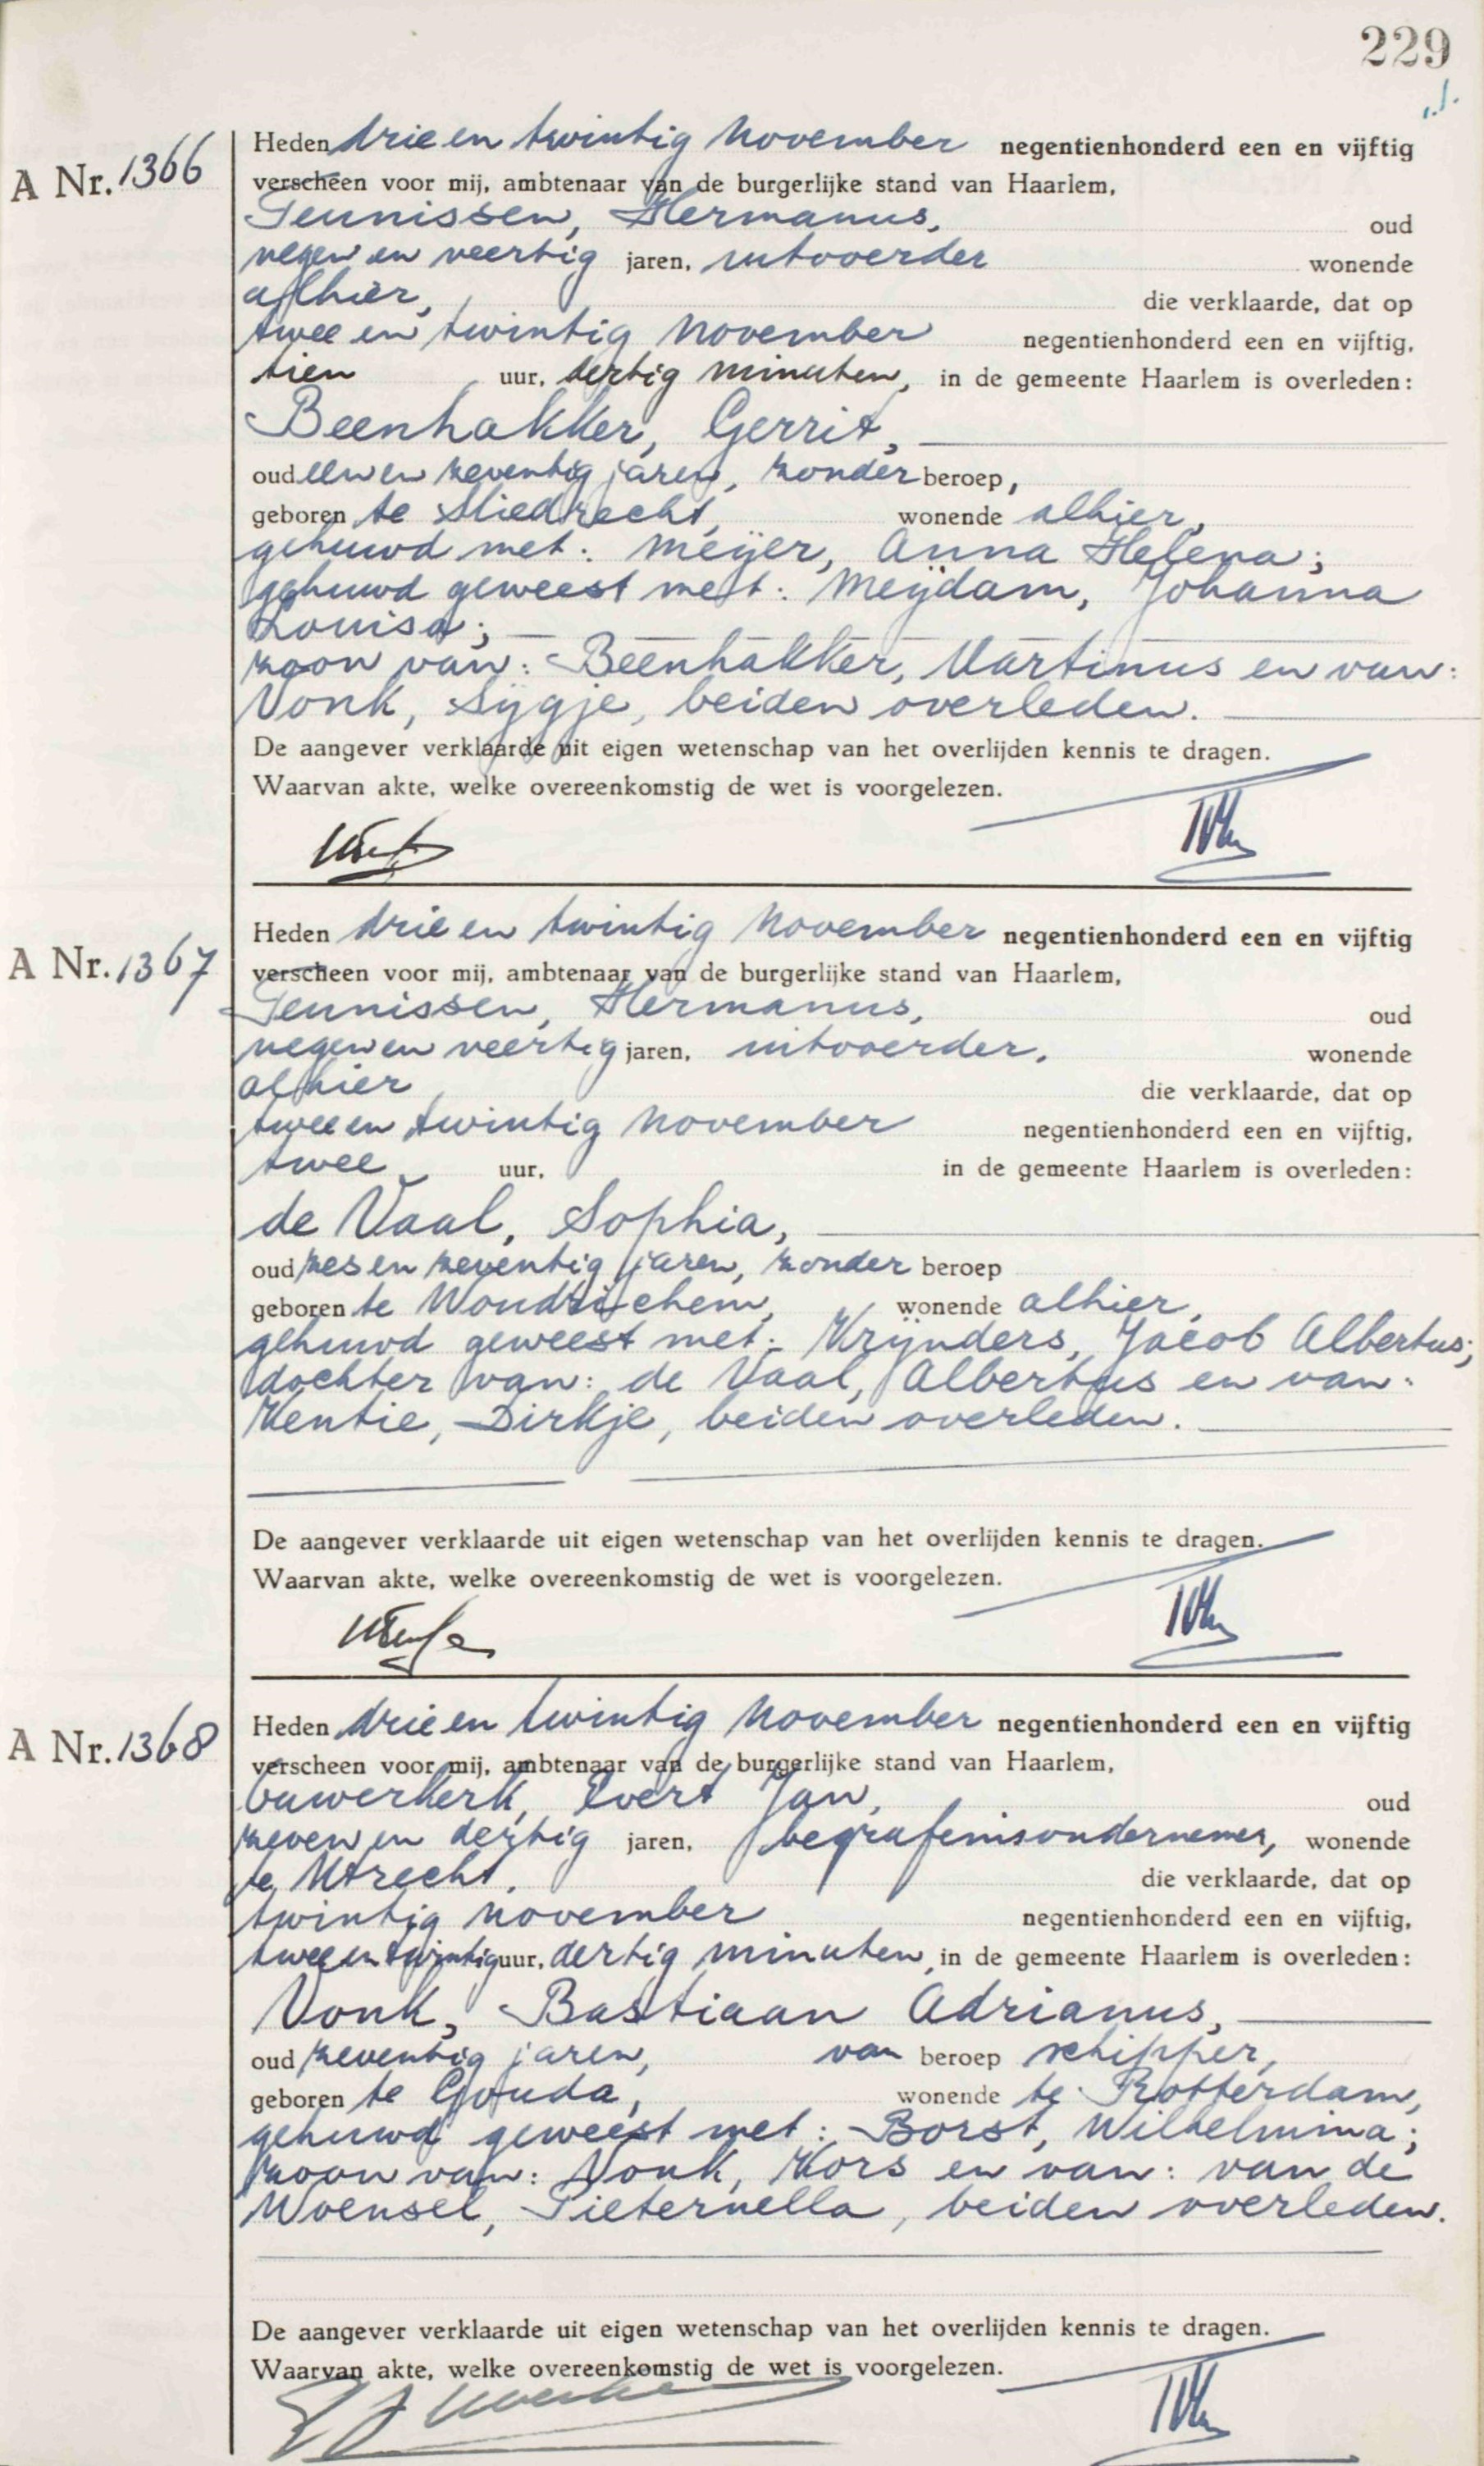 229
A Nr. 1366
Heden drie en twintig November negentienhonderd een en vijftig
verscheen voor mij, ambtenaar van de burgerlijke stand van Haarlem,
Teunissen, Hermanus, oud
negen en veertig jaren, uitvoerder wonende
alhier, die verklaarde, dat op
twee en twintig November negentienhonderd een en vijftig,
tien uur, dertig minuten, in de gemeente Haarlem is overleden:
Beenhakker, Gerrit,
oud een en zeventig jaren, zonder beroep,
geboren te Sliedrecht, wonende alhier,
gehuwd met: Meijer, Anna Helena;
gehuwd geweest met: Meijdam, Johanna
Louisa;
zoon van: Beenhakker, Martinus en van:
Vonk, Sijgje, beiden overleden.
De aangever verklaarde uit eigen wetenschap van het overlijden kennis te dragen.
Waarvan akte, welke overeenkomstig de wet is voorgelezen.
A Nr. 1367
Heden drie en twintig November negentienhonderd een en vijftig
verscheen voor mij, ambtenaar van de burgerlijke stand van Haarlem,
Teunissen, Hermanus, oud
negen en veertig jaren, uitvoerder, wonende
alhier die verklaarde, dat op
twee en twintig November negentienhonderd een en vijftig,
twee uur, in de gemeente Haarlem is overleden:
de Vaal, Sophia,
oud zes en zeventig jaren, zonder beroep
geboren te Woudrichem, wonende alhier,
gehuwd geweest met: Krijnders, Jacob Albertus;
dochter van: de Vaal, Albertus en van:
Kentie, Dirkje, beiden overleden.
De aangever verklaarde uit eigen wetenschap van het overlijden kennis te dragen.
Waarvan akte, welke overeenkomstig de wet is voorgelezen.
A Nr. 1368
Heden drie en twintig November negentienhonderd een en vijftig
verscheen voor mij, ambtenaar van de burgerlijke stand van Haarlem,
Ouwerkerk, Evert Jan, oud
zeven en dertig jaren, begrafenisondernemer, wonende
te Utrecht, die verklaarde, dat op
twintig November negentienhonderd een en vijftig,
twee en twintig uur, dertig minuten, in de gemeente Haarlem is overleden:
Vonk, Bastiaan Adrianus,
oud zeventig jaren, van beroep schipper,
geboren te Gouda, wonende te Rotterdam,
gehuwd geweest met: Borst, Wilhelmina;
zoon van: Vonk, Kors en van: van de
Woensel, Pieternella, beiden overleden.
De aangever verklaarde uit eigen wetenschap van het overlijden kennis te dragen.
Waarvan akte, welke overeenkomstig de wet is voorgelezen.